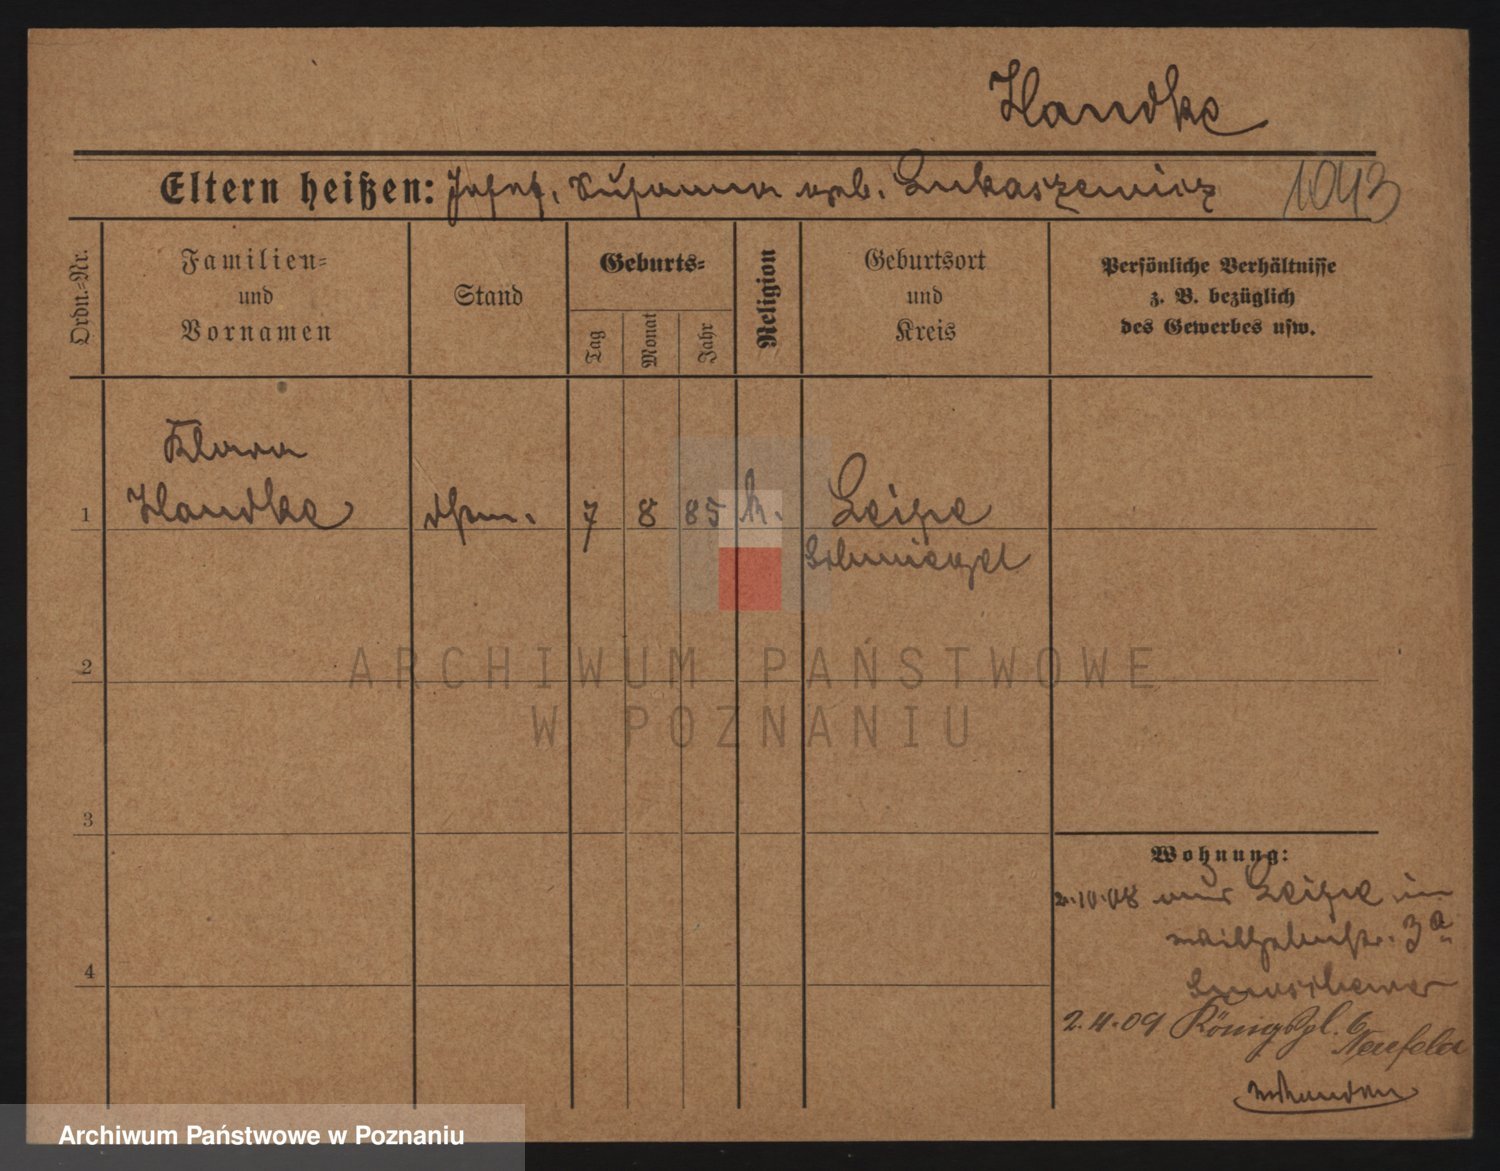 Handke
Eltern heißen: Josef, Susanna geb. Lukaszewicz 1043
Ordn.-Nr.
Familien-
und
Vornamen
Stand
Geburts-
Tag
Monat
Jahr
Religion
Geburtsort
und
Kreis
Persönliche Verhältnisse
z. B. bezüglich
des Gewerbes usw.
Klara
1 Handke 7 8 85 k. Leipe
Schmiegel
ARCHIWUM PAŃSTWOWE
W POZNANIU
2
3
4
Wohnung:
2.10.08 aus Leipe in
Wilhelmstr. 3a
2.11.09 Königspl. 6
Neufeld
Archiwum Państwowe w Poznaniu